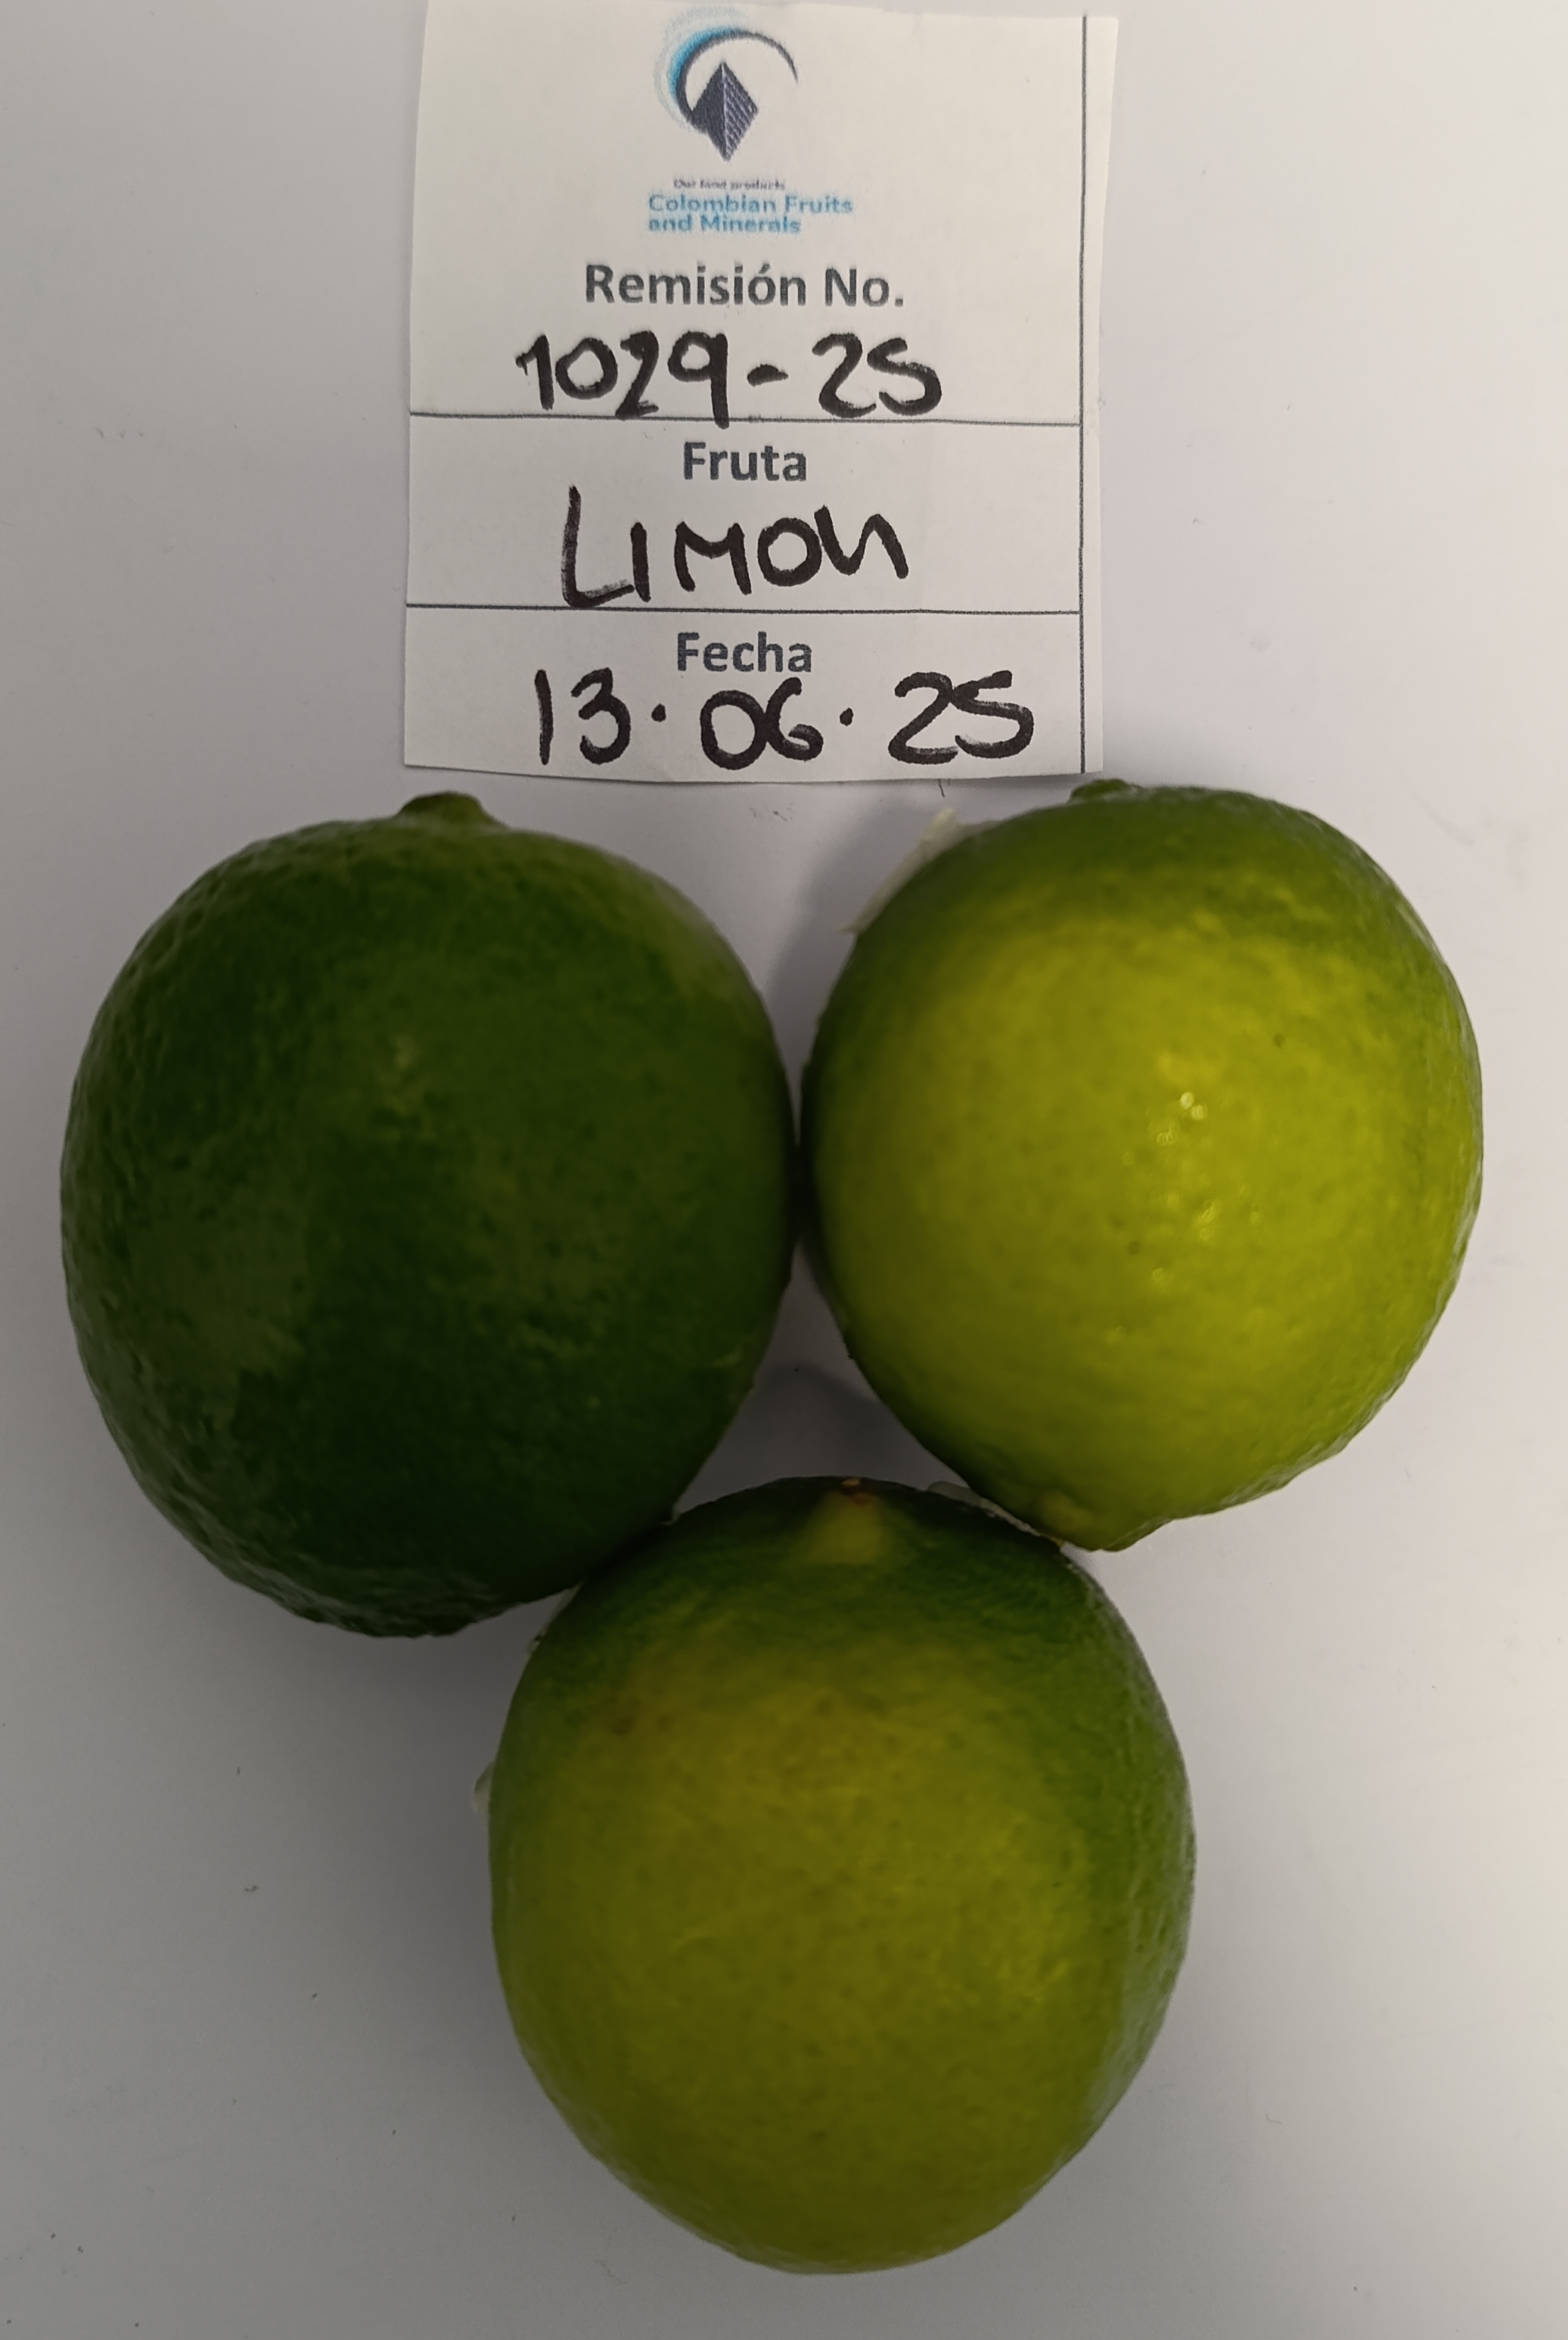 Our land products
Colombian Fruits
and Minerals
Remisión No.
1029-25
Fruta
LIMON
Fecha
13.06.25